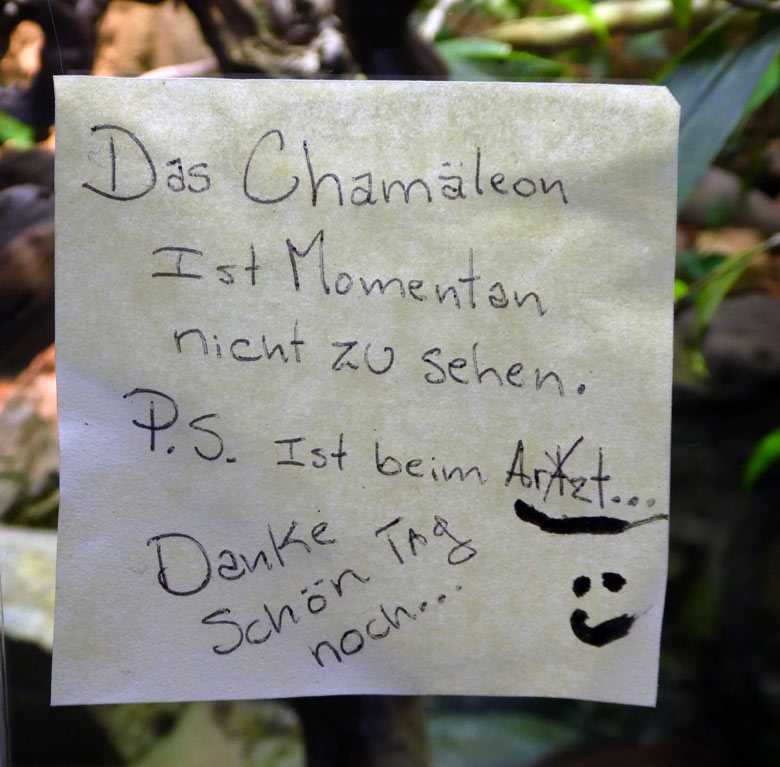 Das Chamäleon
Ist Momentan
nicht zu sehen.
P.S. Ist beim Arzt...
Danke
Schön Tag
noch...